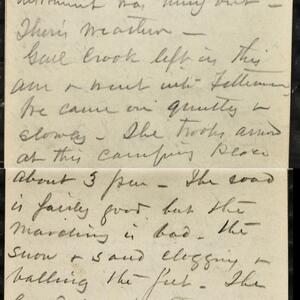 instrument was hung out -
There's weather -
Genl Crook left us this
am & went into Fetterman
We came on quietly &
slowly - The troops arrived
at this camping place
about 3 pm - The road
is fairly good but the
marching is bad - The
snow & sand clogging &
balling the feet - The